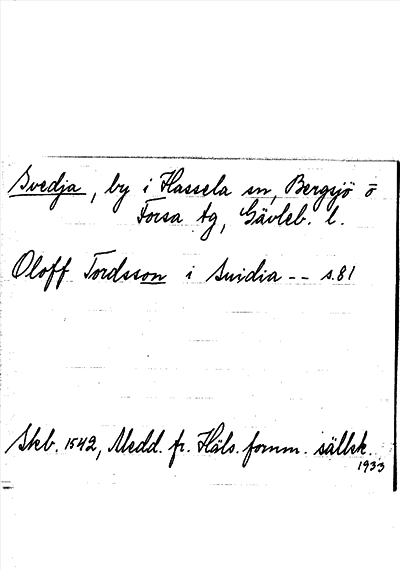 Svedja, by i Hassela sn, Bergsjö o
Forsa tg, Gävleb. l.
Oloff Tordsson i Suidia -- s.81
Skb. 1542, Medd. fr. Häls. fornm. sällsk.
1933